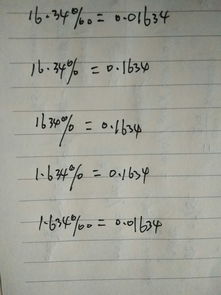 16.34‰ = 0.01634
16.34% = 0.1634
1634% = 0.1634
1.634% = 0.1634
1.634‰ = 0.01634